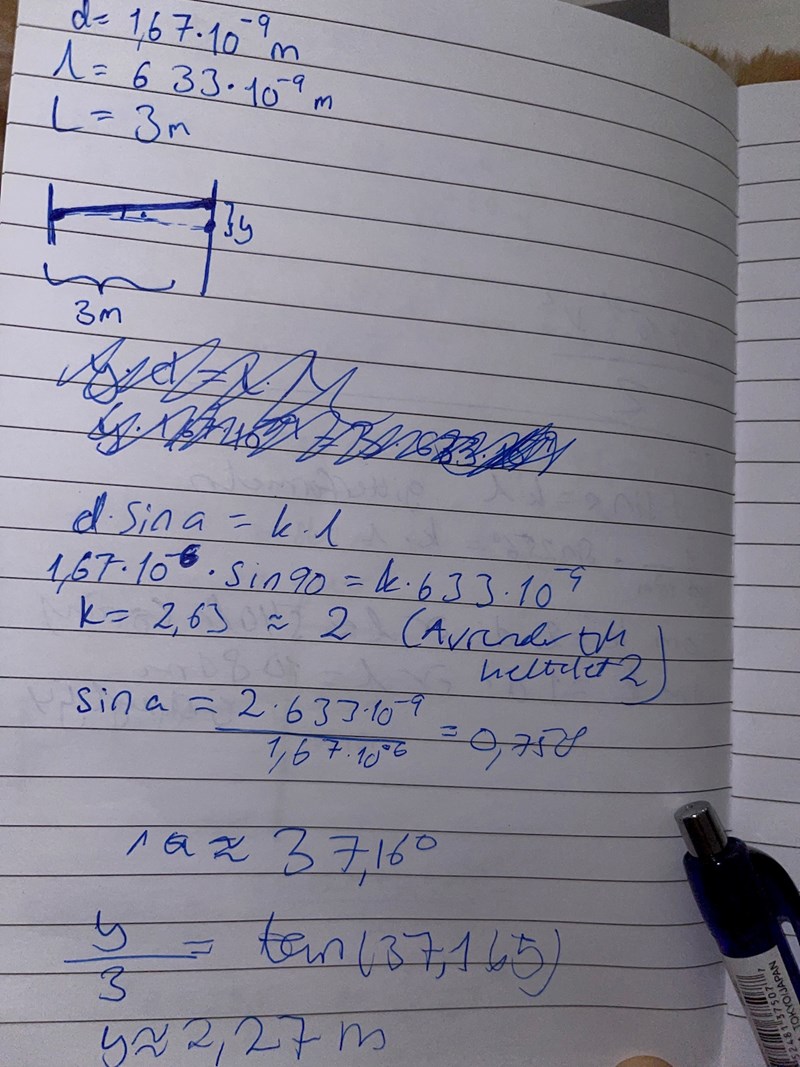 d = 1,67·10⁻⁹ m
λ = 633·10⁻⁹ m
L = 3m
}y
3m
d·sin a = k·λ
1,67·10⁻⁶·sin 90 = k·633·10⁻⁹
k = 2,63 ≈ 2 (Avrundar till
heltalet 2)
sin a = 2·633·10⁻⁹ / 1,67·10⁻⁶ = 0,758
a ≈ 37,16°
y/3 = tan(37,165)
y ≈ 2,27 m
TOKYO JAPAN